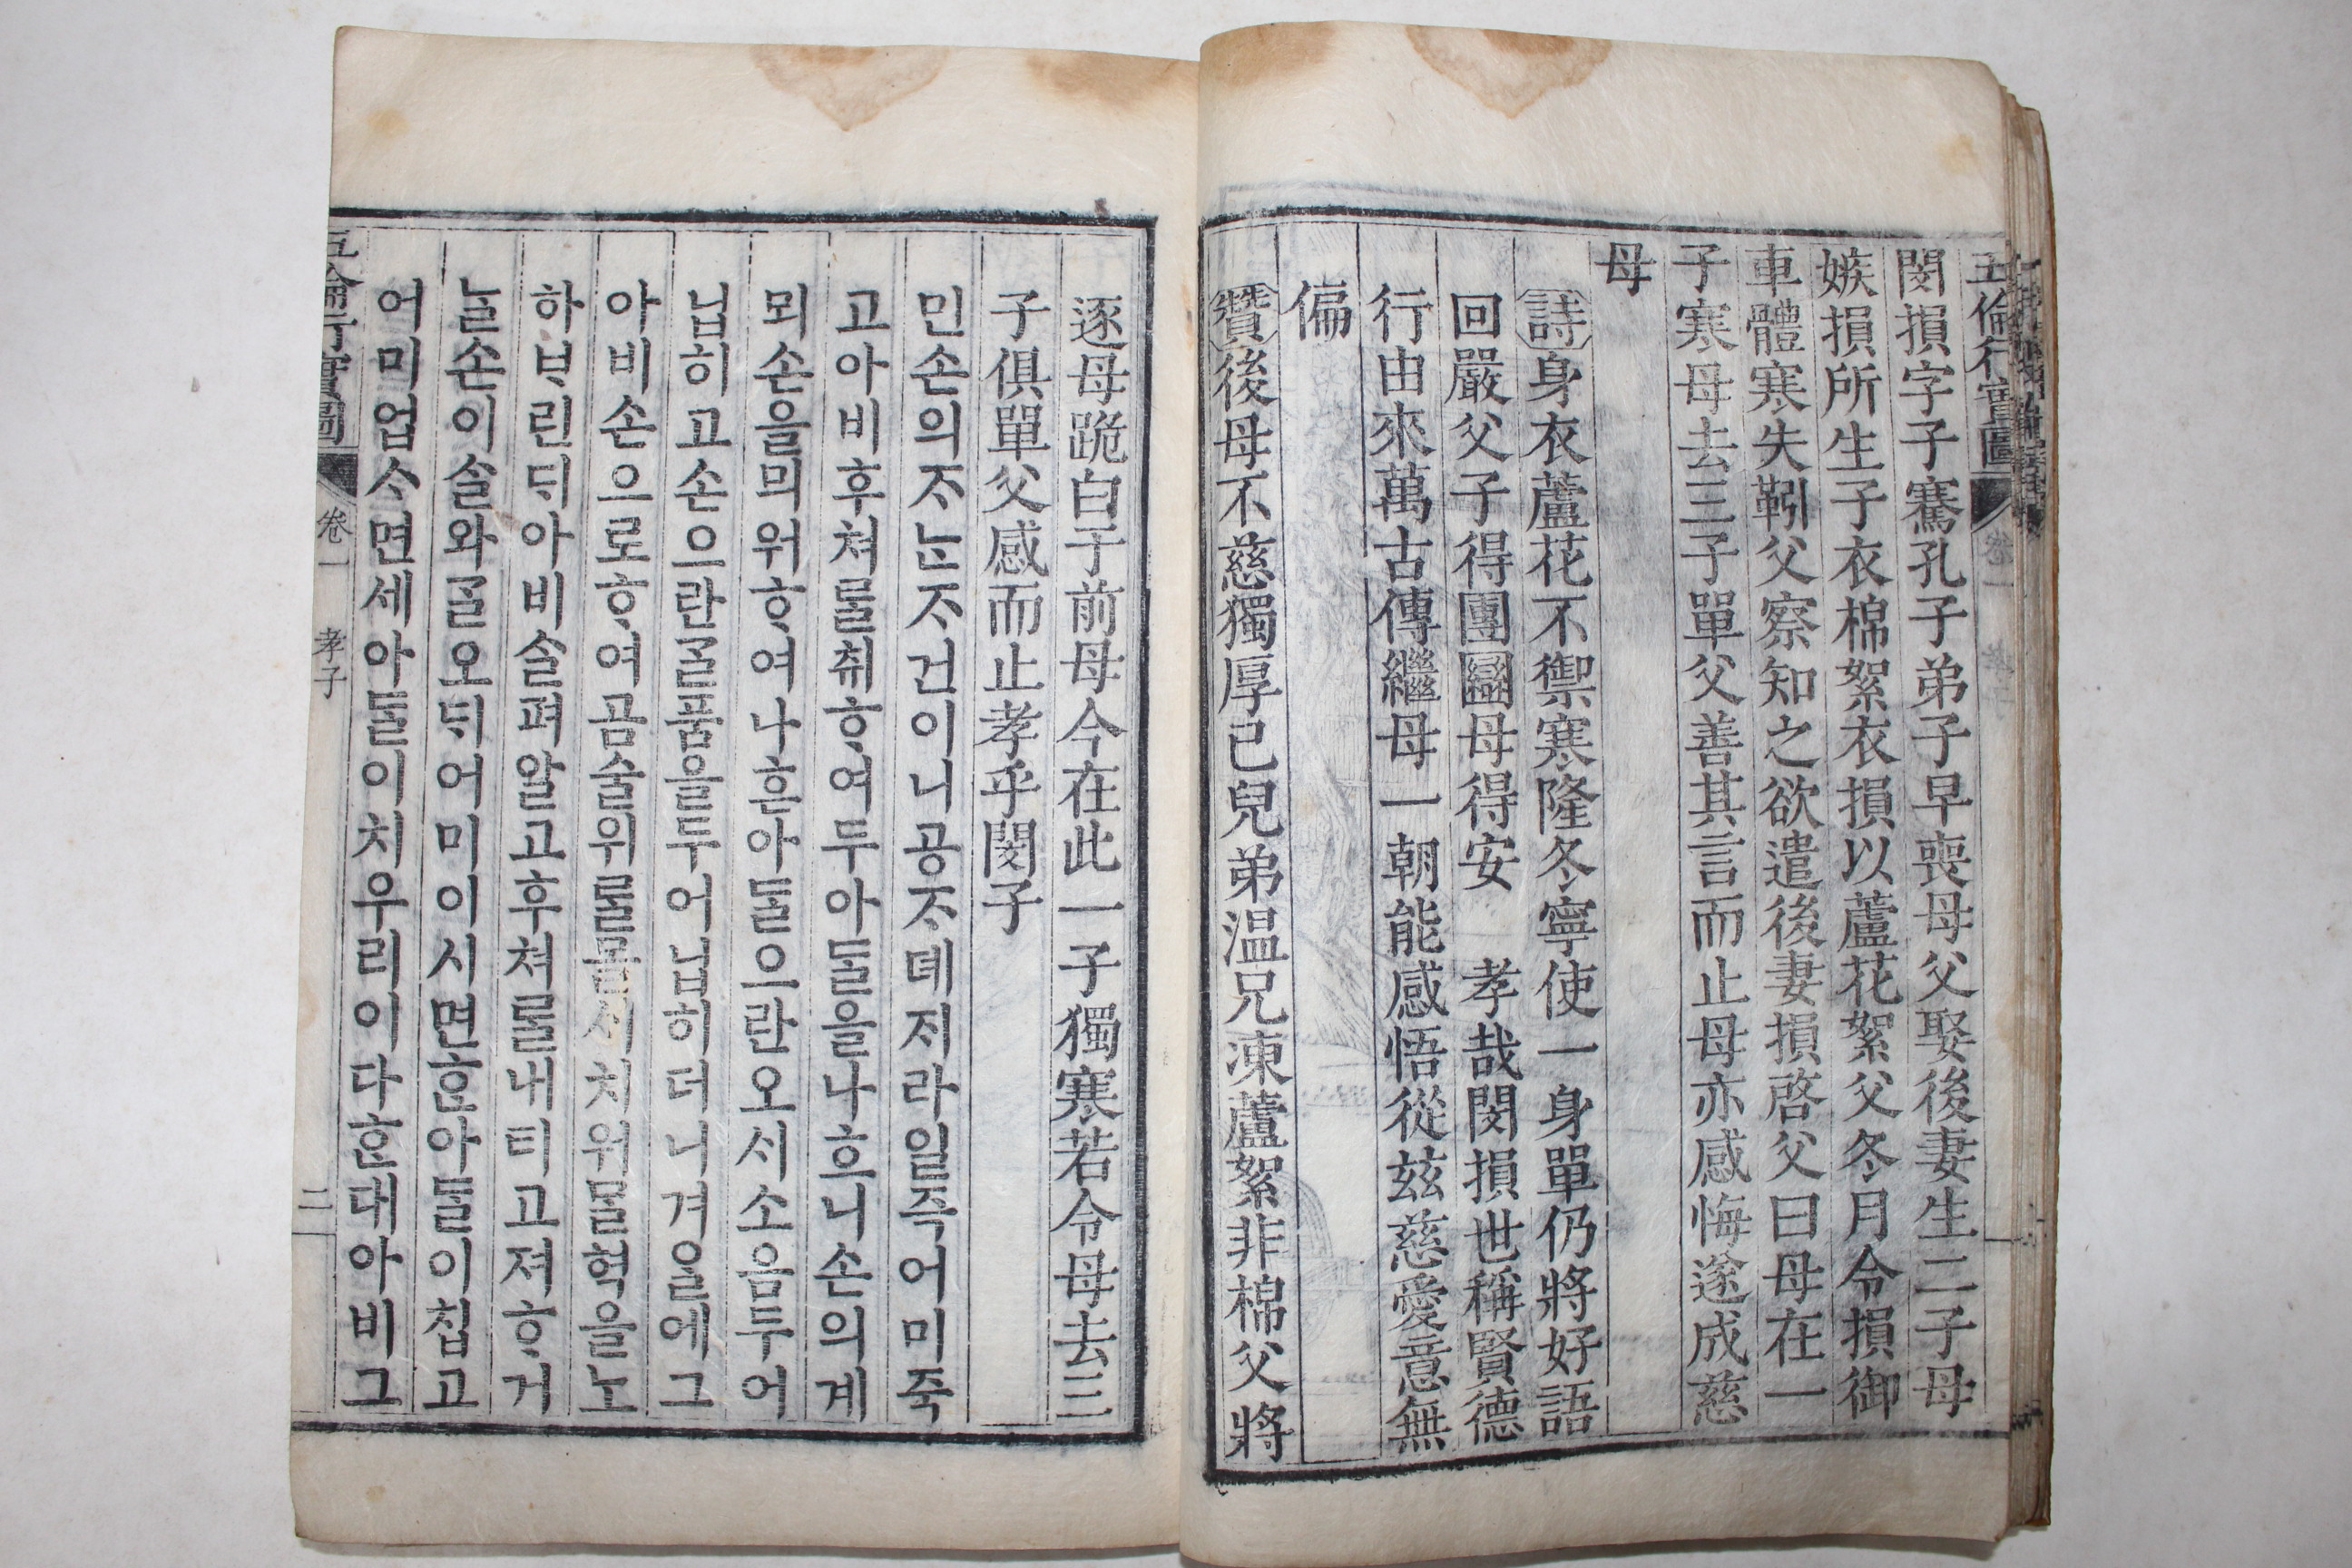 五倫行實圖 卷一
閔損字子騫孔子弟子早喪母父娶後妻生二子母
嫉損所生子衣棉絮衣損以蘆花絮父冬月令損御
車體寒失靷父察知之欲遣後妻損啓父曰母在一
子寒母去三子單父善其言而止母亦感悔遂成慈
母
詩身衣蘆花不禦寒隆冬寧使一身單仍將好語
回嚴父子得團圞母得安 孝哉閔損世稱賢德
行由來萬古傳繼母一朝能感悟從玆慈愛意無
偏
贊後母不慈獨厚己兒弟温兄凍蘆絮非棉父將
逐母跪白于前母今在此一子獨寒若令母去三
子俱單父感而止孝乎閔子
민손의ᄌᆞᄂᆞᆫᄌᆞ건이니공ᄌᆞ뎨ᄌᆡ라일즉어미죽
고아비후쳐ᄅᆞᆯ취ᄒᆞ여두아ᄃᆞᆯ을나흐니손의계
뫼손을믜워ᄒᆞ여나흔아ᄃᆞᆯ으란오ᄉᆡ소음두어
닙히고손으란ᄀᆞᆯ품을두어닙히더니겨ᄋᆞᆯ에그
아비손으로ᄒᆞ여곰술위ᄅᆞᆯ몰ᄉᆡ치워ᄆᆞᆯ혁을노
하ᄇᆞ린ᄃᆡ아비ᄉᆞᆯ펴알고후쳐ᄅᆞᆯ내티고져ᄒᆞ거
ᄂᆞᆯ손이ᄉᆞᆯ와ᄀᆞᆯ오ᄃᆡ어미이시면ᄒᆞᆫ아ᄃᆞᆯ이칩고
어미업ᄉᆞ면세아ᄃᆞᆯ이치우리이다ᄒᆞᆫ대아비그
五倫行實圖 卷一 孝子 二